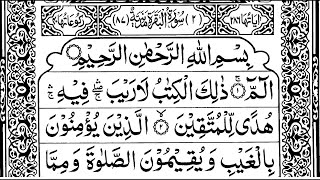 اٰيَاتُهَا ٢٨٦ (٢) سُوْرَةُ الْبَقَرَةِ مَدَنِيَّةٌ (٨٧) رُكُوْعَاتُهَا ٤٠
بِسْمِ اللّٰهِ الرَّحْمٰنِ الرَّحِيْمِ
الٓمّٓ ذٰلِكَ الْكِتٰبُ لَا رَيْبَ ۛ فِيْهِ ۛ
هُدًى لِّلْمُتَّقِيْنَ ٢ الَّذِيْنَ يُؤْمِنُوْنَ
بِالْغَيْبِ وَيُقِيْمُوْنَ الصَّلٰوةَ وَمِمَّا